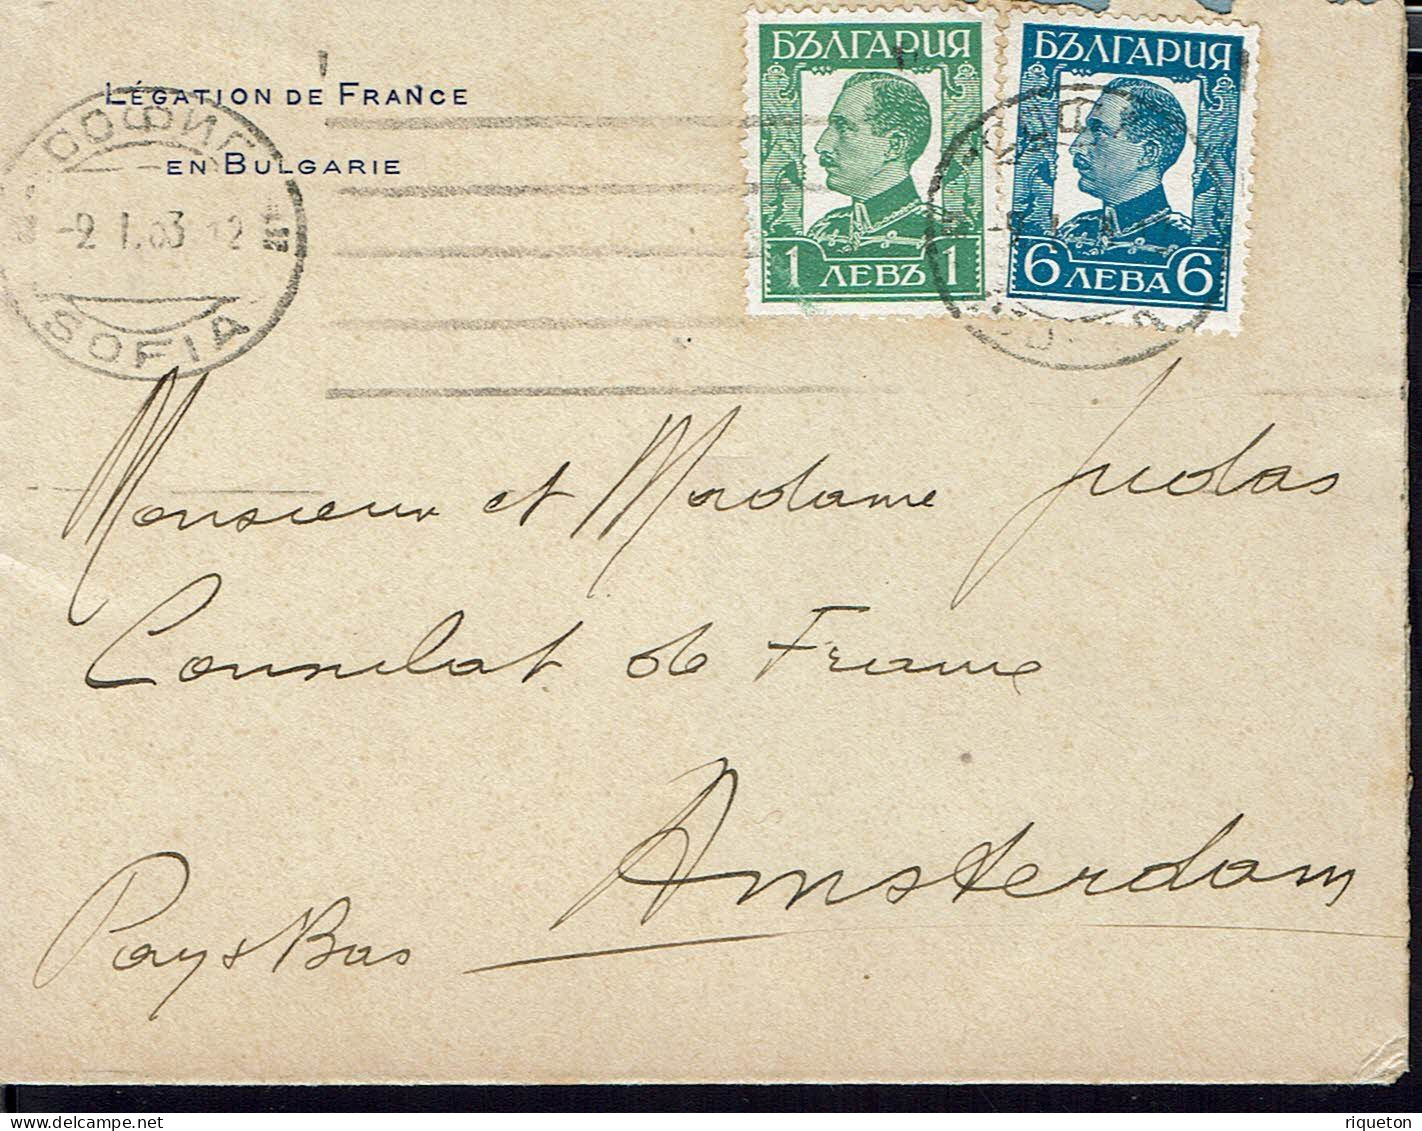 LÉGATION DE FRANCE
EN BULGARIE
СОФИЯ
-2.I.33 12
SOFIA
БЪЛГАРИЯ
1 ЛЕВЪ 1
БЪЛГАРИЯ
6 ЛЕВА 6
Monsieur et Madame Judas
Consulat de France
Amsterdam
Pays Bas
riqueton